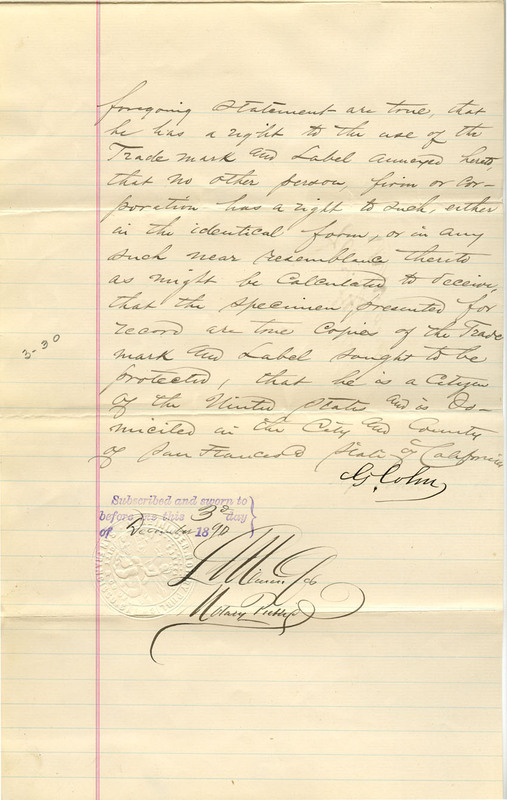 foregoing statement are true, that
he has a right to the use of the
Trade mark and Label annexed hereto,
that no other person, firm or cor-
poration has a right to such, either
in the identical form, or in any
such near resemblance thereto
as might be calculated to deceive,
that the specimen presented for
record are true copies of the Trade
mark and Label sought to be
protected, that he is a Citizen
of the United States and is do-
miciled in the City and County
of San Francisco State of California
3-30
G. Cohn
Subscribed and sworn to
before me this 3d day
of December 1890
Notary Public